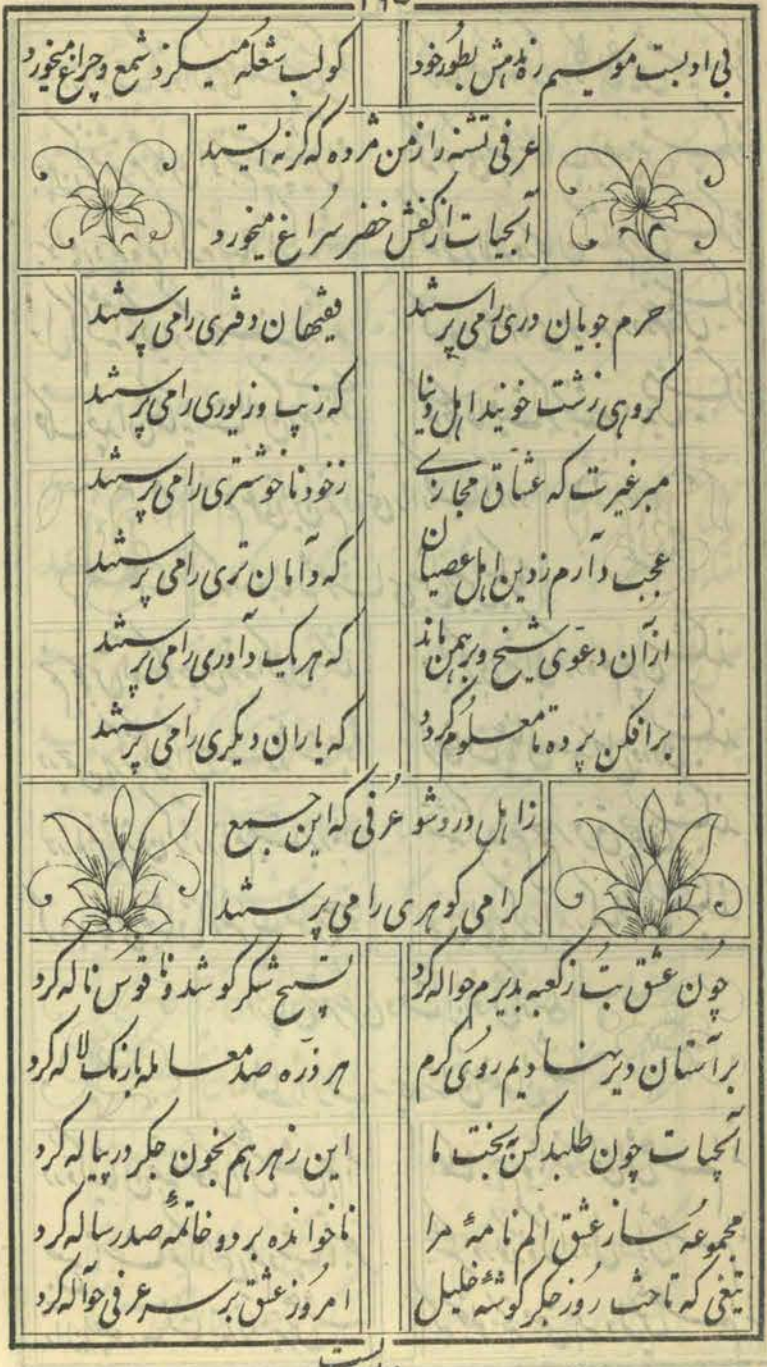 بی او بست موسیم زندهش بطور خود کو لب شعله میکزد شمع و چراغ میخورد
عرفی تشنه را ز من مژده که گرنه ایستد
آبحیات از کفش خضر سراغ میخورد
حرم جویان دری را می پرستند فقیهان دفتری را می پرستند
کروهی زشت خویند اهل دنیا که زیب و زیوری را می پرستند
مبر غیرت که عشاق مجازے ز خود ناخوشتری را می پرستند
عجب دارم ز دین اهل عصیان که دامان تری را می پرستند
از آن دعوی شیخ و برهمن ماند که هریک داوری را می پرستند
برافکن پرده تا معلوم کردد که یاران دیکری را می پرستند
ز اهل درد شو عرفی که این جمع
کرامی کوهری را می پرستند
چون عشق بت ز کعبه بدیرم حواله کرد تسبیح شکر کو شد و ناقوس ناله کرد
بر آستان دیر نهادیم روی کرم هر ذره صد معامله با رنک لاله کرد
آبحیات چون طلبد کس بخت ما این زهر هم بخون جکر در پیاله کرد
مجموعه ساز عشق الم نامهٔ مرا ناخوانده برد و خاتمهٔ صد رساله کرد
تیغی که تا حشر روز جکر کوشهٔ خلیل امروز عشق بر سر عرفی حواله کرد